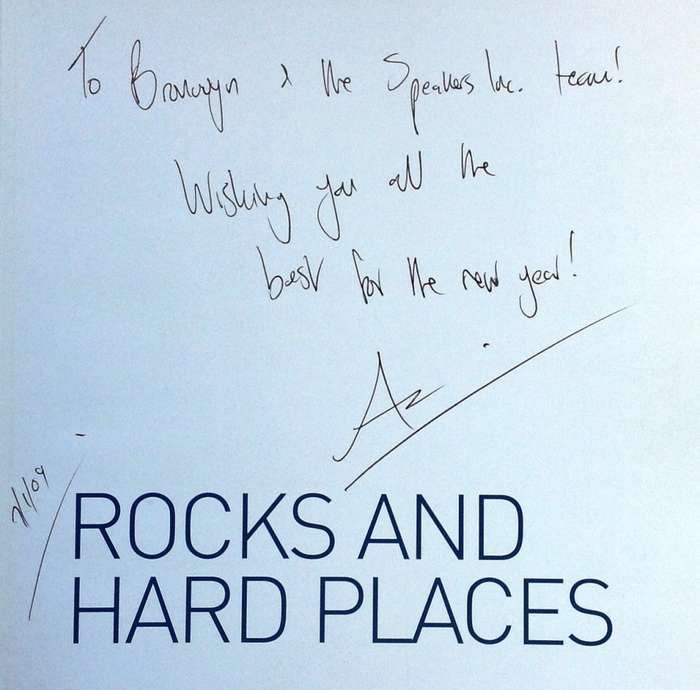 To Bronwyn & the Speakers Inc. team!
Wishing you all the
best for the new year!
2/1/09
ROCKS AND
HARD PLACES